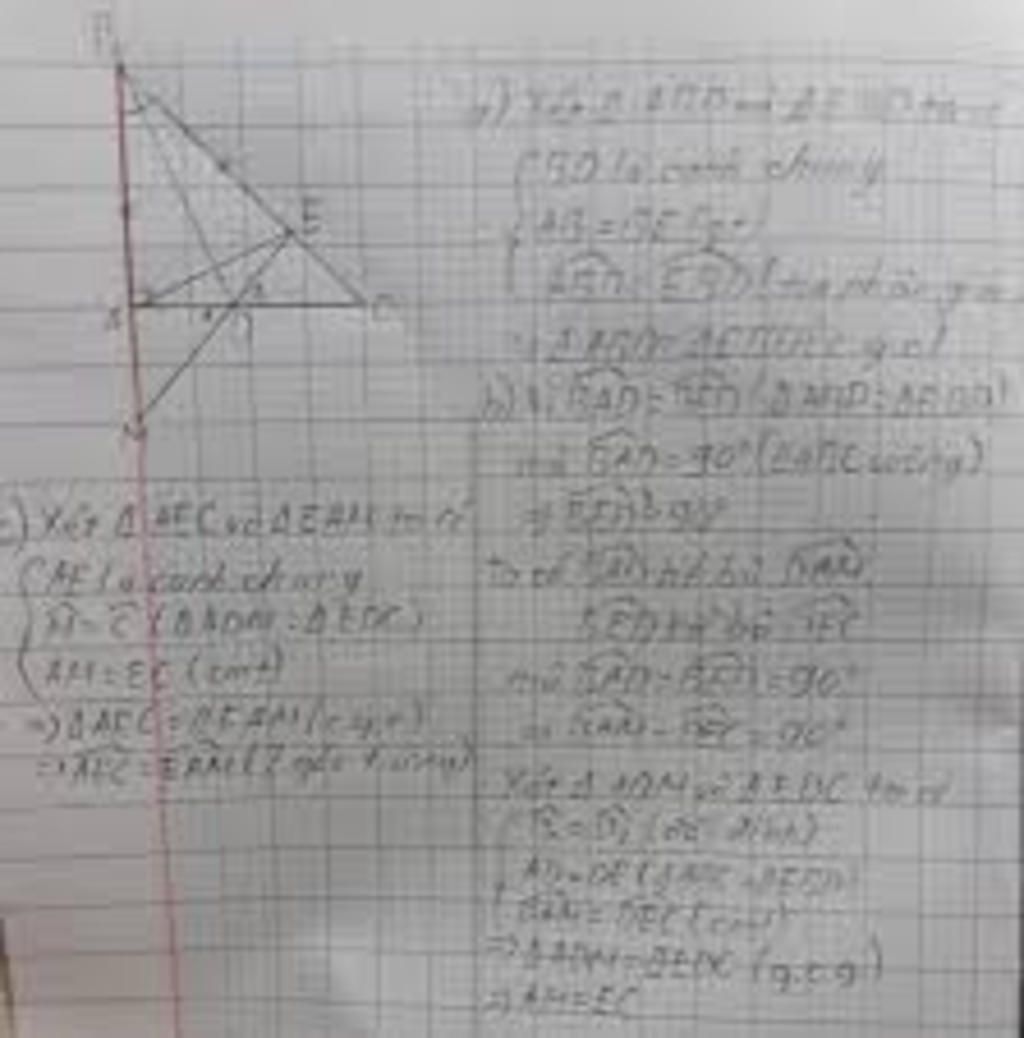 B
E
A
D
C
M
a) Xét Δ ABD và Δ EBD ta có
BD là cạnh chung
AB = BE (gt)
ABD = EBD (tia phân giác
=> Δ ABD = Δ EBD (c.g.c)
b) Vì BAD = BED (Δ ABD = Δ EBD)
mà BAD = 90° (Δ ABC vuông)
=> BED = 90°
Ta có BAD kề bù DAM
BED kề bù DEC
mà BAD = BED = 90°
=> DAM = DEC = 90°
Xét Δ ADM và Δ EDC ta có
(đối đỉnh)
AD = DE (Δ ABD = Δ EBD)
DAM = DEC (cmt)
=> Δ ADM = Δ EDC (g.c.g)
=> AM = EC
c) Xét Δ AEC và Δ EAM ta có
AE là cạnh chung
M = C (Δ ADM = Δ EDC)
AM = EC (cmt)
=> Δ AEC = Δ EAM (c.g.c)
=> AEC = EAM (2 góc t.ứng)